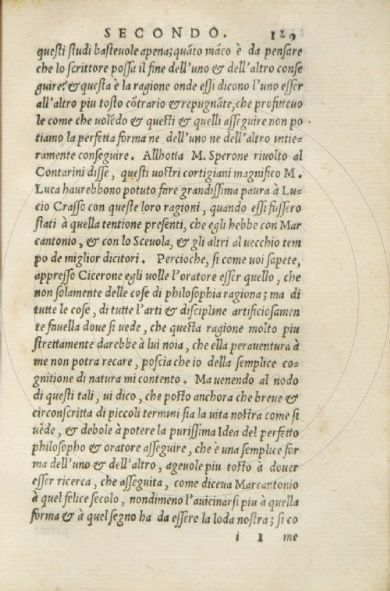 SECONDO. 129
questi studi basteuole apena; quāto māco è da pensare
che lo scrittore possa il fine dell'uno & dell'altro conse
guire? & questa è la ragione onde essi dicono l'uno esser
all'altro piu tosto cōtrario & repugnāte, che profitteuo
le come che uolēdo & questi & quelli asseguire non po-
tiamo la perfetta forma ne dell'uno ne dell'altro intie-
ramente conseguire. Allhotta M. Sperone riuolto al
Contarini disse, questi uostri cortigiani magnifico M.
Luca haurebbono potuto fare grandissima paura à Lu-
cio Crasso con queste loro ragioni, quando essi fussero
stati à quella tentione presenti, che egli hebbe con Mar
cantonio, & con lo Sceuola, & gli altri al uecchio tem
po de miglior dicitori. Percioche, si come uoi sapete,
appresso Cicerone egli uolle l'oratore esser quello, che
non solamente delle cose di philosophia ragiona; ma di
tutte le cose, di tutte l'arti & discipline artificiosamen
te fauella doue si uede, che questa ragione molto piu
strettamente darebbe à lui noia, che ella perauentura à
me non potra recare, poscia che io della semplice co-
gnitione di natura mi contento. Ma uenendo al nodo
di questi tali, ui dico, che posto anchora che breue &
circonscritta di piccoli termini sia la uita nostra come si
uède, & debole à potere la purissima Idea del perfetto
philosopho & oratore asseguire, che è una semplice for
ma dell'uno & dell'altro, ageuole piu tosto à douer
esser ricerca, che asseguita, come diceua Marcantonio
à quel felice secolo, nondimeno l'auicinarsi piu à quella
forma & à quel segno ha da essere la loda nostra; si co
i I me